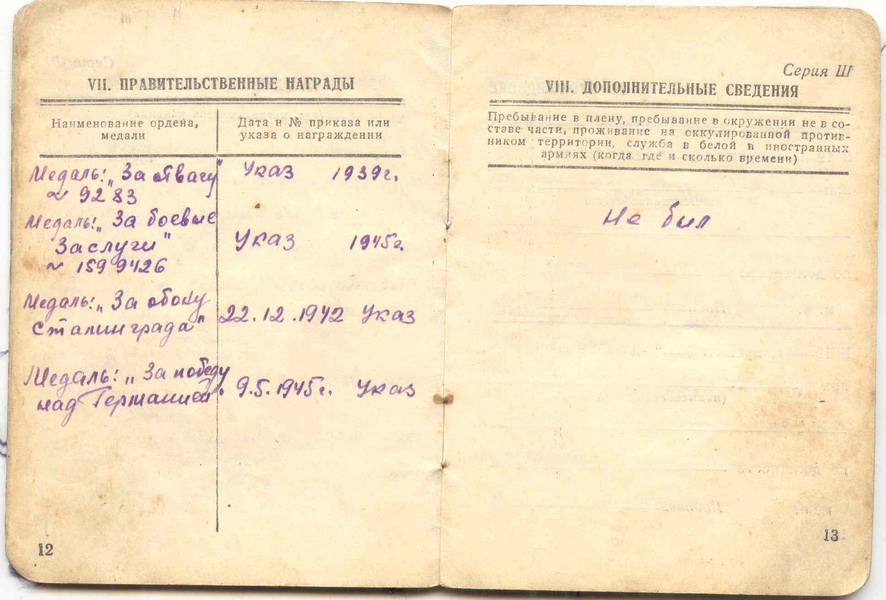 VII. ПРАВИТЕЛЬСТВЕННЫЕ НАГРАДЫ
Наименование ордена, медали
Дата и № приказа или указа о награждении
Медаль: „За отвагу"
№ 9283
Указ 1939г.
Медаль: „За боевые
Заслуги"
№ 1599426
Указ 1945г.
Медаль: „За обону
Сталинграда"
22.12.1942 Указ
Медаль: „За победу
над Германией"
9.5.1945г. Указ
12
Серия Ш
VIII. ДОПОЛНИТЕЛЬНЫЕ СВЕДЕНИЯ
Пребывание в плену, пребывание в окружении не в со-
ставе части, проживание на оккупированной против-
ником территории, служба в белой и иностранных
армиях (когда, где и сколько времени)
Не бил
13